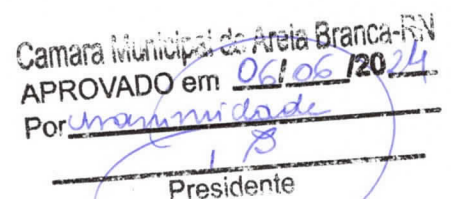 Camara Municipal de Areia Branca-RN
APROVADO em 06/06/2024
Por unanimidade
Presidente